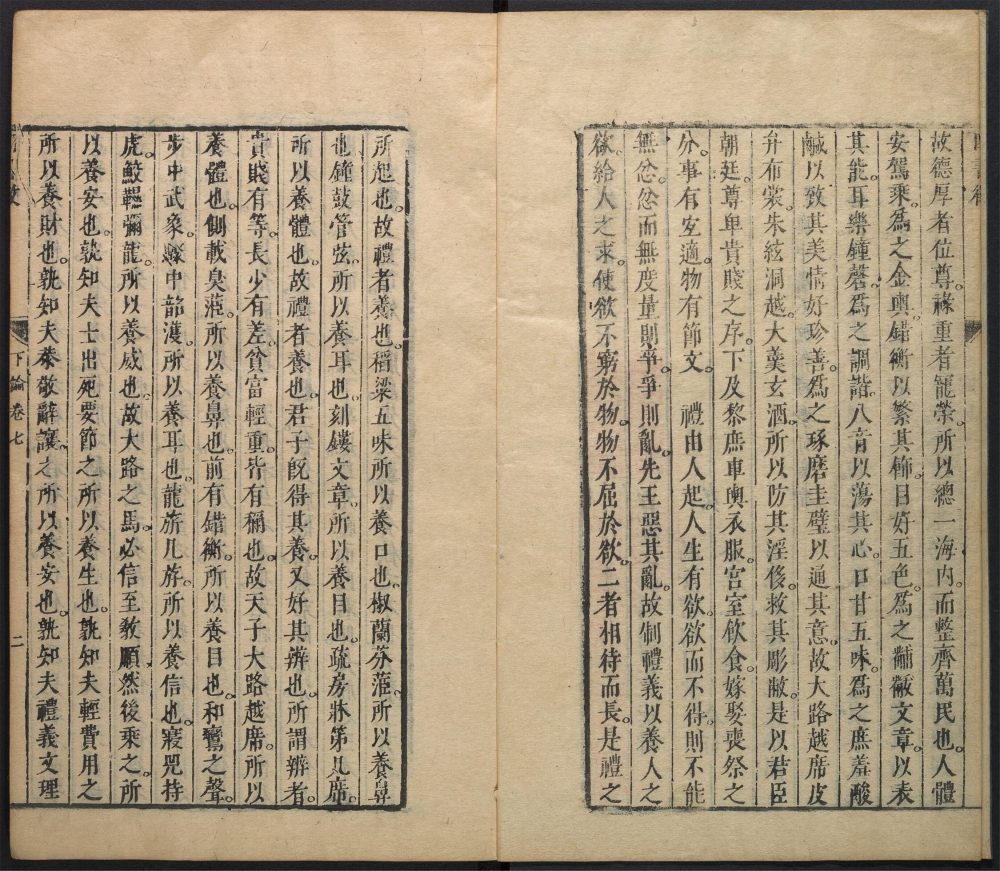 故德厚者位尊祿重者寵榮所以總一海內而整齊萬民也人體
安駕乘爲之金輿錯衡以繁其飾目好五色爲之黼黻文章以表
其能耳樂鐘磬爲之調諧八音以蕩其心口甘五味爲之庶羞酸
鹹以致其美情好珍善爲之琢磨圭璧以通其意故大路越席皮
弁布裳朱絃洞越大羹玄酒所以防其淫侈救其彫敝是以君臣
朝廷尊卑貴賤之序下及黎庶車輿衣服宮室飲食嫁娶喪祭之
分事有宜適物有節文 禮由人起人生有欲欲而不得則不能
無忿忿而無度量則爭爭則亂先王惡其亂故制禮義以養人之
欲給人之求使欲不窮於物物不屈於欲二者相待而長是禮之
所起也故禮者養也稻粱五味所以養口也椒蘭芬茝所以養鼻
也鐘鼓管弦所以養耳也刻鏤文章所以養目也疏房牀笫几席
所以養體也故禮者養也君子旣得其養又好其辨也所謂辨者
貴賤有等長少有差貧富輕重皆有稱也故天子大路越席所以
養體也側載臭茝所以養鼻也前有錯衡所以養目也和鸞之聲
步中武象驟中韶濩所以養耳也龍旂九斿所以養信也寢兕持
虎鮫韅彌龍所以養威也故大路之馬必信至敎順然後乘之所
以養安也孰知夫士出死要節之所以養生也孰知夫輕費用之
所以養財也孰知夫恭敬辭讓之所以養安也孰知夫禮義文理
下論 卷七 二